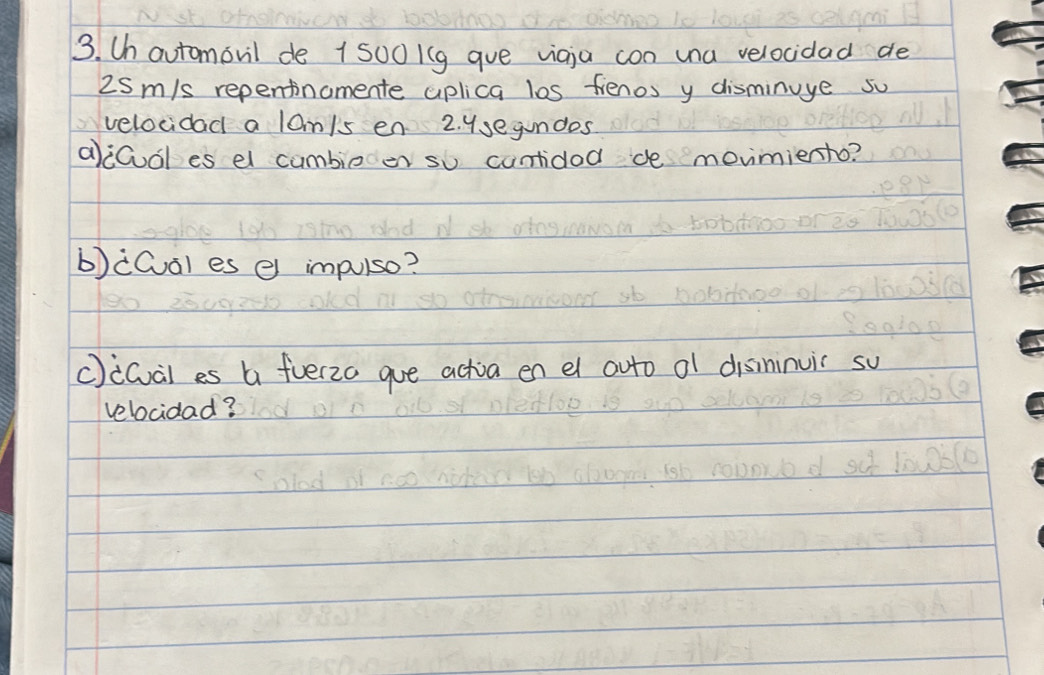 3. Un automóvil de 1500 kg que viaja con una velocidad de
25 m/s repentinamente aplica los frenos y disminuye su
velocidad a 10 m/s en 2.4 segundos
a) ¿Cuál es el cambio en su cantidad de movimiento?
b) ¿Cuál es el impulso?
c) ¿Cuál es la fuerza que actúa en el auto al disminuir su
velocidad?